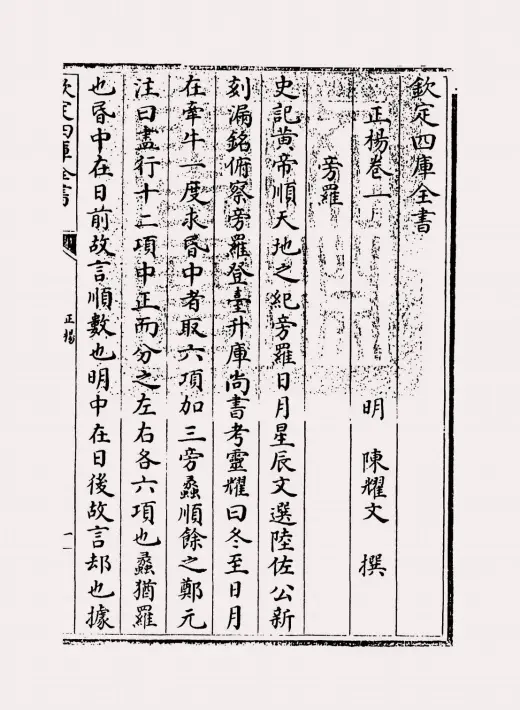 欽定四庫全書
正楊卷一 明 陳耀文 撰
旁羅
史記黃帝順天地之紀旁羅日月星辰文選陸佐公新
刻漏銘俯察旁羅登臺升庫尚書考靈耀曰冬至日月
在牽牛一度求昏中者取六項加三旁蠡順餘之鄭元
注曰盡行十二項中正而分之左右各六項也蠡猶羅
也昏中在日前故言順數也明中在日後故言却也據
欽定四庫全書
正楊
一